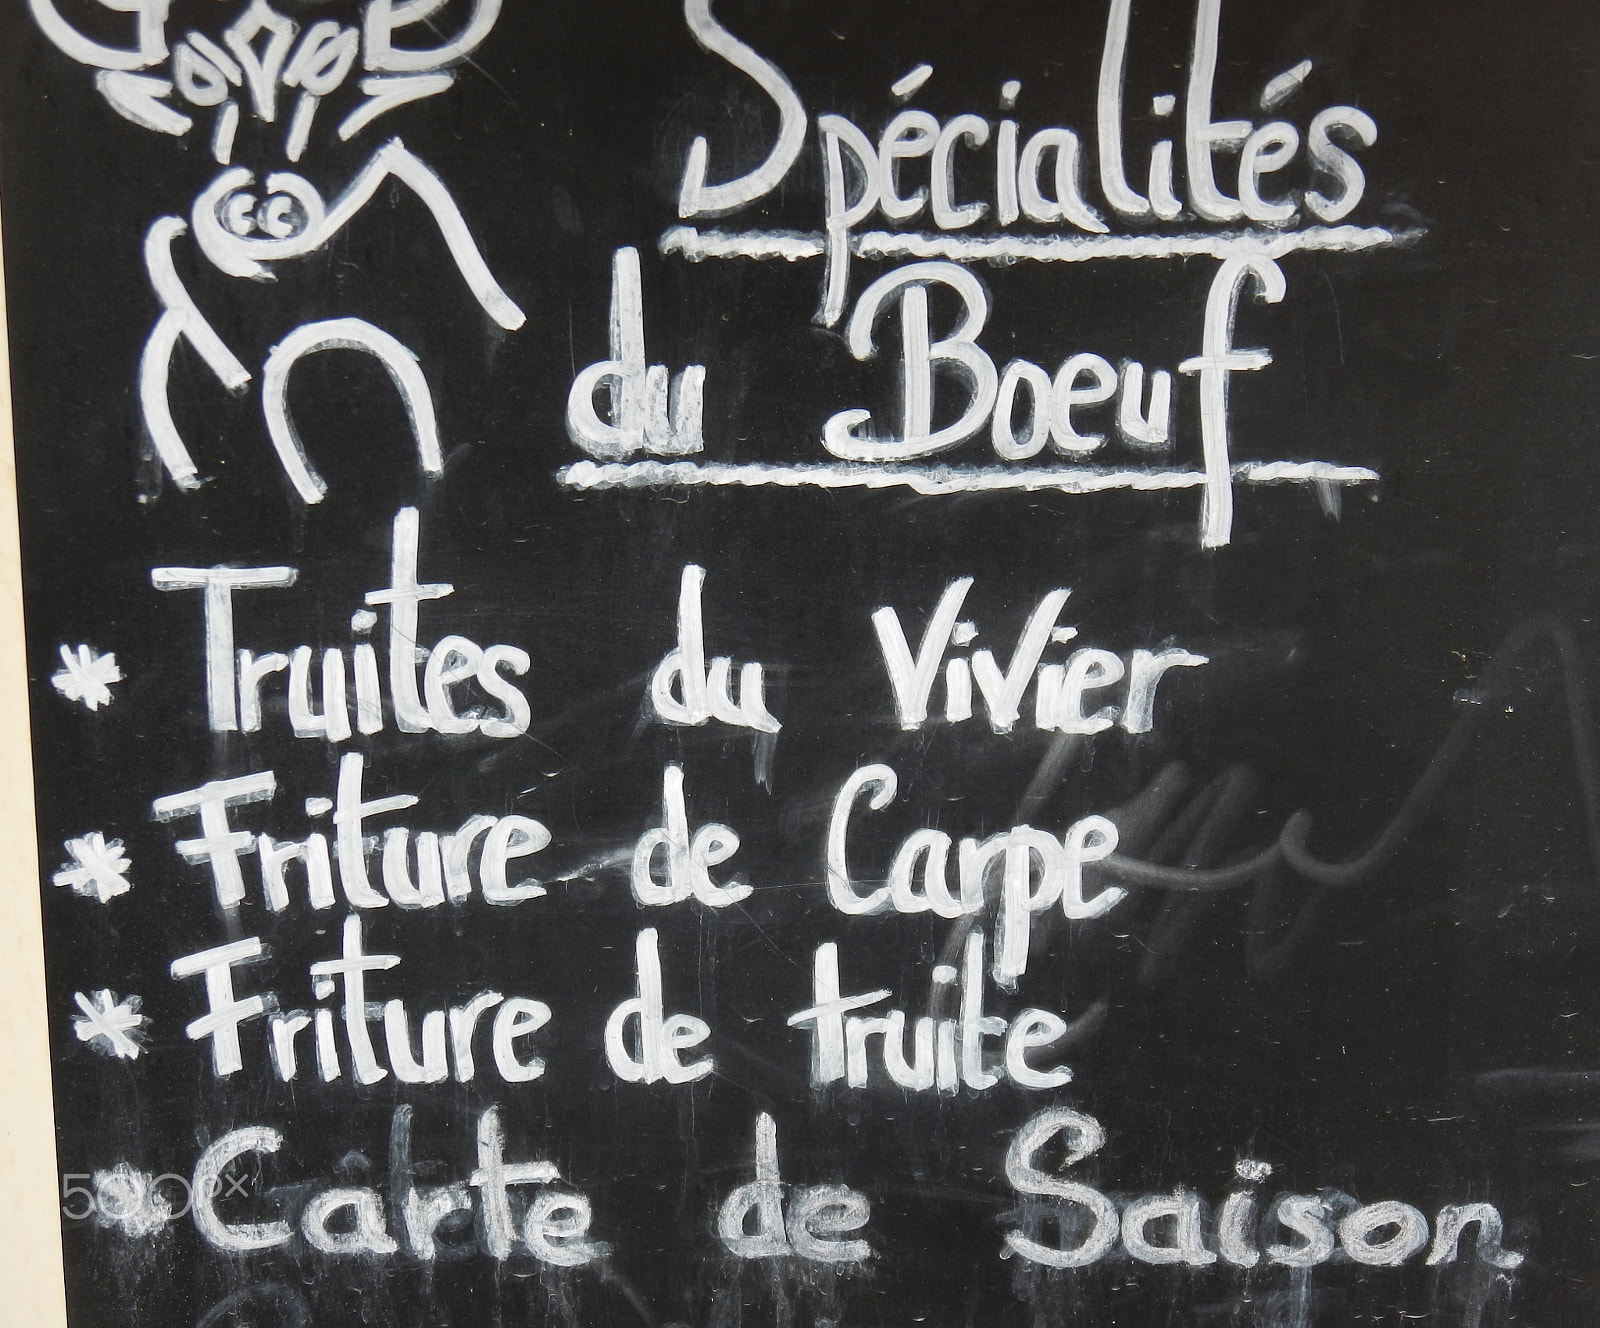 Spécialités
du Boeuf
* Truites du Vivier
* Friture de Carpe
* Friture de truite
* Carte de Saison
500px